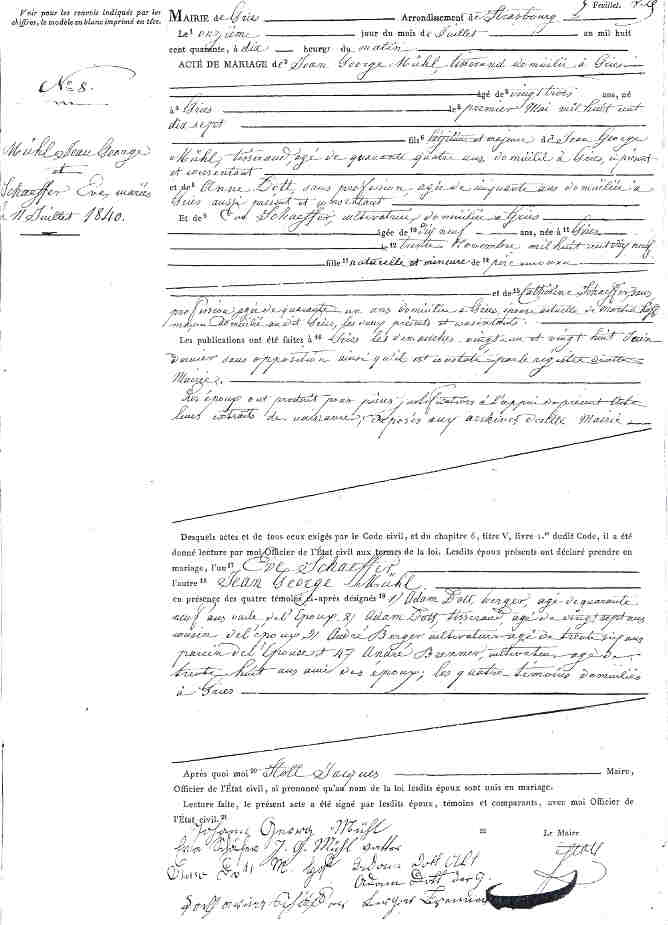 Voir pour les renvois indiqués par les
chiffres, le modèle en blanc imprimé en tête.
Feuillet.
MAIRIE de Gries Arrondissement de Strasbourg
Le onzième jour du mois de Juillet an mil huit
cent quarante, à dix heures du matin
ACTE DE MARIAGE de Jean George Mühl, tisserand domicilié à Gries
N.° 8.
âgé de vingt trois ans, né
à Gries le premier Mai mil huit cent
dix sept
fils légitime et majeur de Jean George
Mühl, tisserand, agé de quarante quatre ans domicilié à Gries, ici présent
et consentant
et de Anne Dott, sans profession, agée de cinquante ans domiciliée à
Gries aussi présente et consentante
Et de Eve Schaeffer, cultivatrice, domiciliée à Gries
Mühl Jean George
et
Schaeffer Eve, mariés
11 Juillet 1840.
âgée de 10 dix neuf ans, née à 11 Gries
le 12 trente Novembre mil huit cent dix neuf
fille 13 naturelle et mineure de 14 père inconnu
et de 15 Catherine Schaeffer, sans
profession agée de quarante un ans domiciliée à Gries, épouse actuelle de
domicilié audit Gries, les deux présents et consentants.
Les publications ont été faites à 16 Gries les dimanches vingt un et vingt huit Juin
dernier sans opposition ainsi qu'il est constaté par le registre de cette
Mairie.
Les époux ont produit pour pièces justificatives à l'appui du présent acte
leurs extraits de naissance, déposés aux archives de cette Mairie
Desquels actes et de tous ceux exigés par le Code civil, et du chapitre 6, titre V, livre 1.er dudit Code, il a été
donné lecture par moi Officier de l'État civil aux termes de la loi. Lesdits époux présents ont déclaré prendre en
mariage, l'un 17 Eve Schaeffer
l'autre 18 Jean George Mühl
en présence des quatre témoins ci-après désignés 19 1/ Adam Dott, berger, agé de quarante
neuf ans oncle de l'Epoux 2/ Adam Dott, tisserand, agé de vingt sept ans
cousin de l'époux 3/ André Berger cultivateur agé de trente six ans
parrain de l'Epouse & 4/ André Brenner, cultivateur agé de
trente huit ans ami des époux; les quatre témoins domiciliés
à Gries
Après quoi moi 20 Stoll Jacques Maire,
Officier de l'État civil, ai prononcé qu'au nom de la loi lesdits époux sont unis en mariage.
Lecture faite, le présent acte a été signé par lesdits époux, témoins et comparants, avec moi Officier de
l'État civil. 21
Johann Georg Mühl
22
Le Maire
J. G. Mühl
Stoll
Adam Dott
Adam Dott der J.